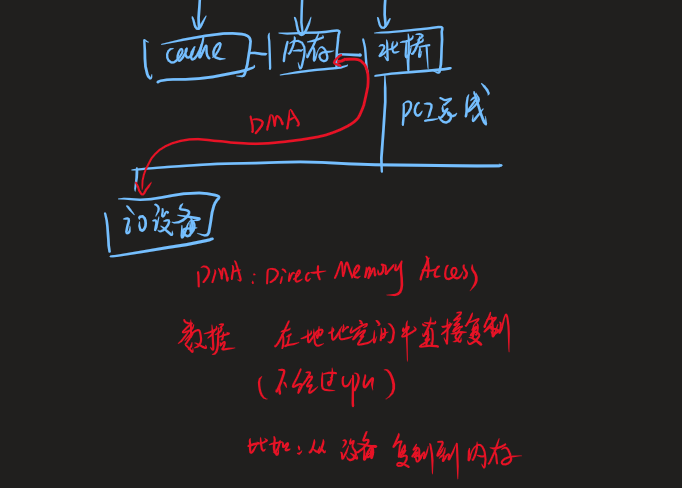 cache 内存 北桥
PCI总线
DMA
io设备
DMA：Direct Memory Access
数据 在地址空间中直接复制
（不经过cpu）
比如：从 设备 复制到 内存